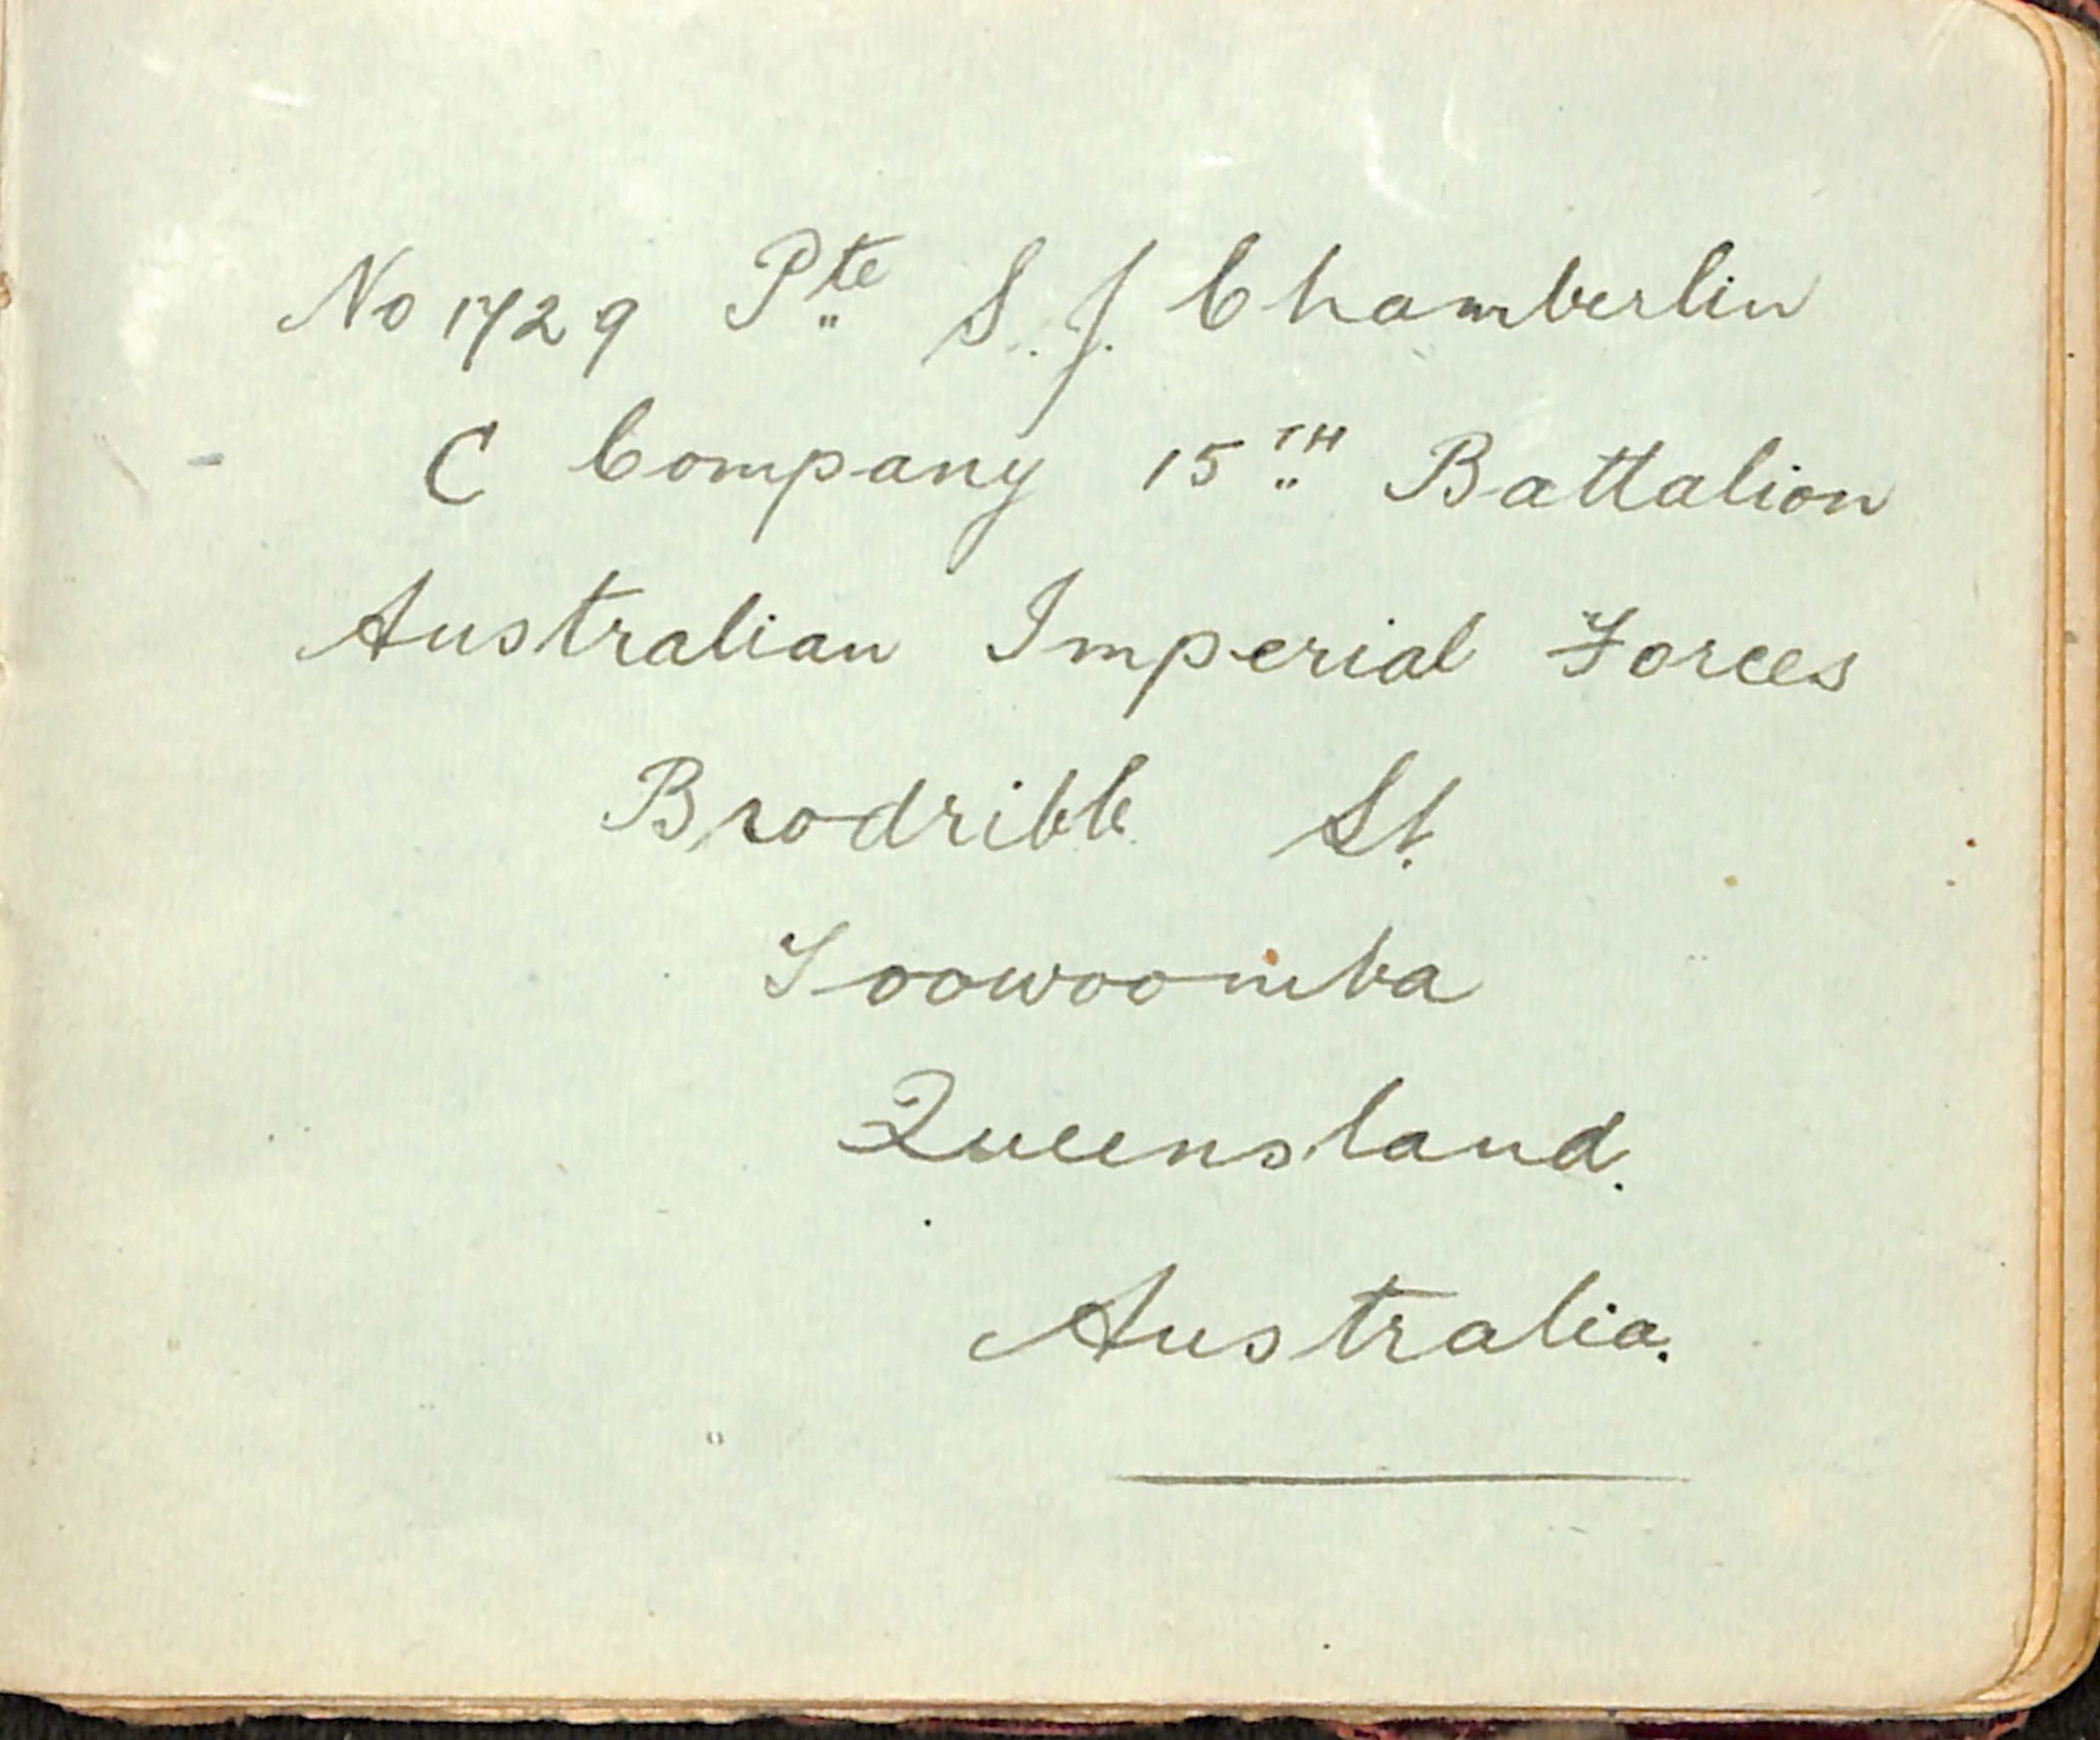 No 1729 Pte S. J. Chamberlin
C Company 15TH Battalion
Australian Imperial Forces
Brodribb St.
Toowoomba
Queensland.
Australia.